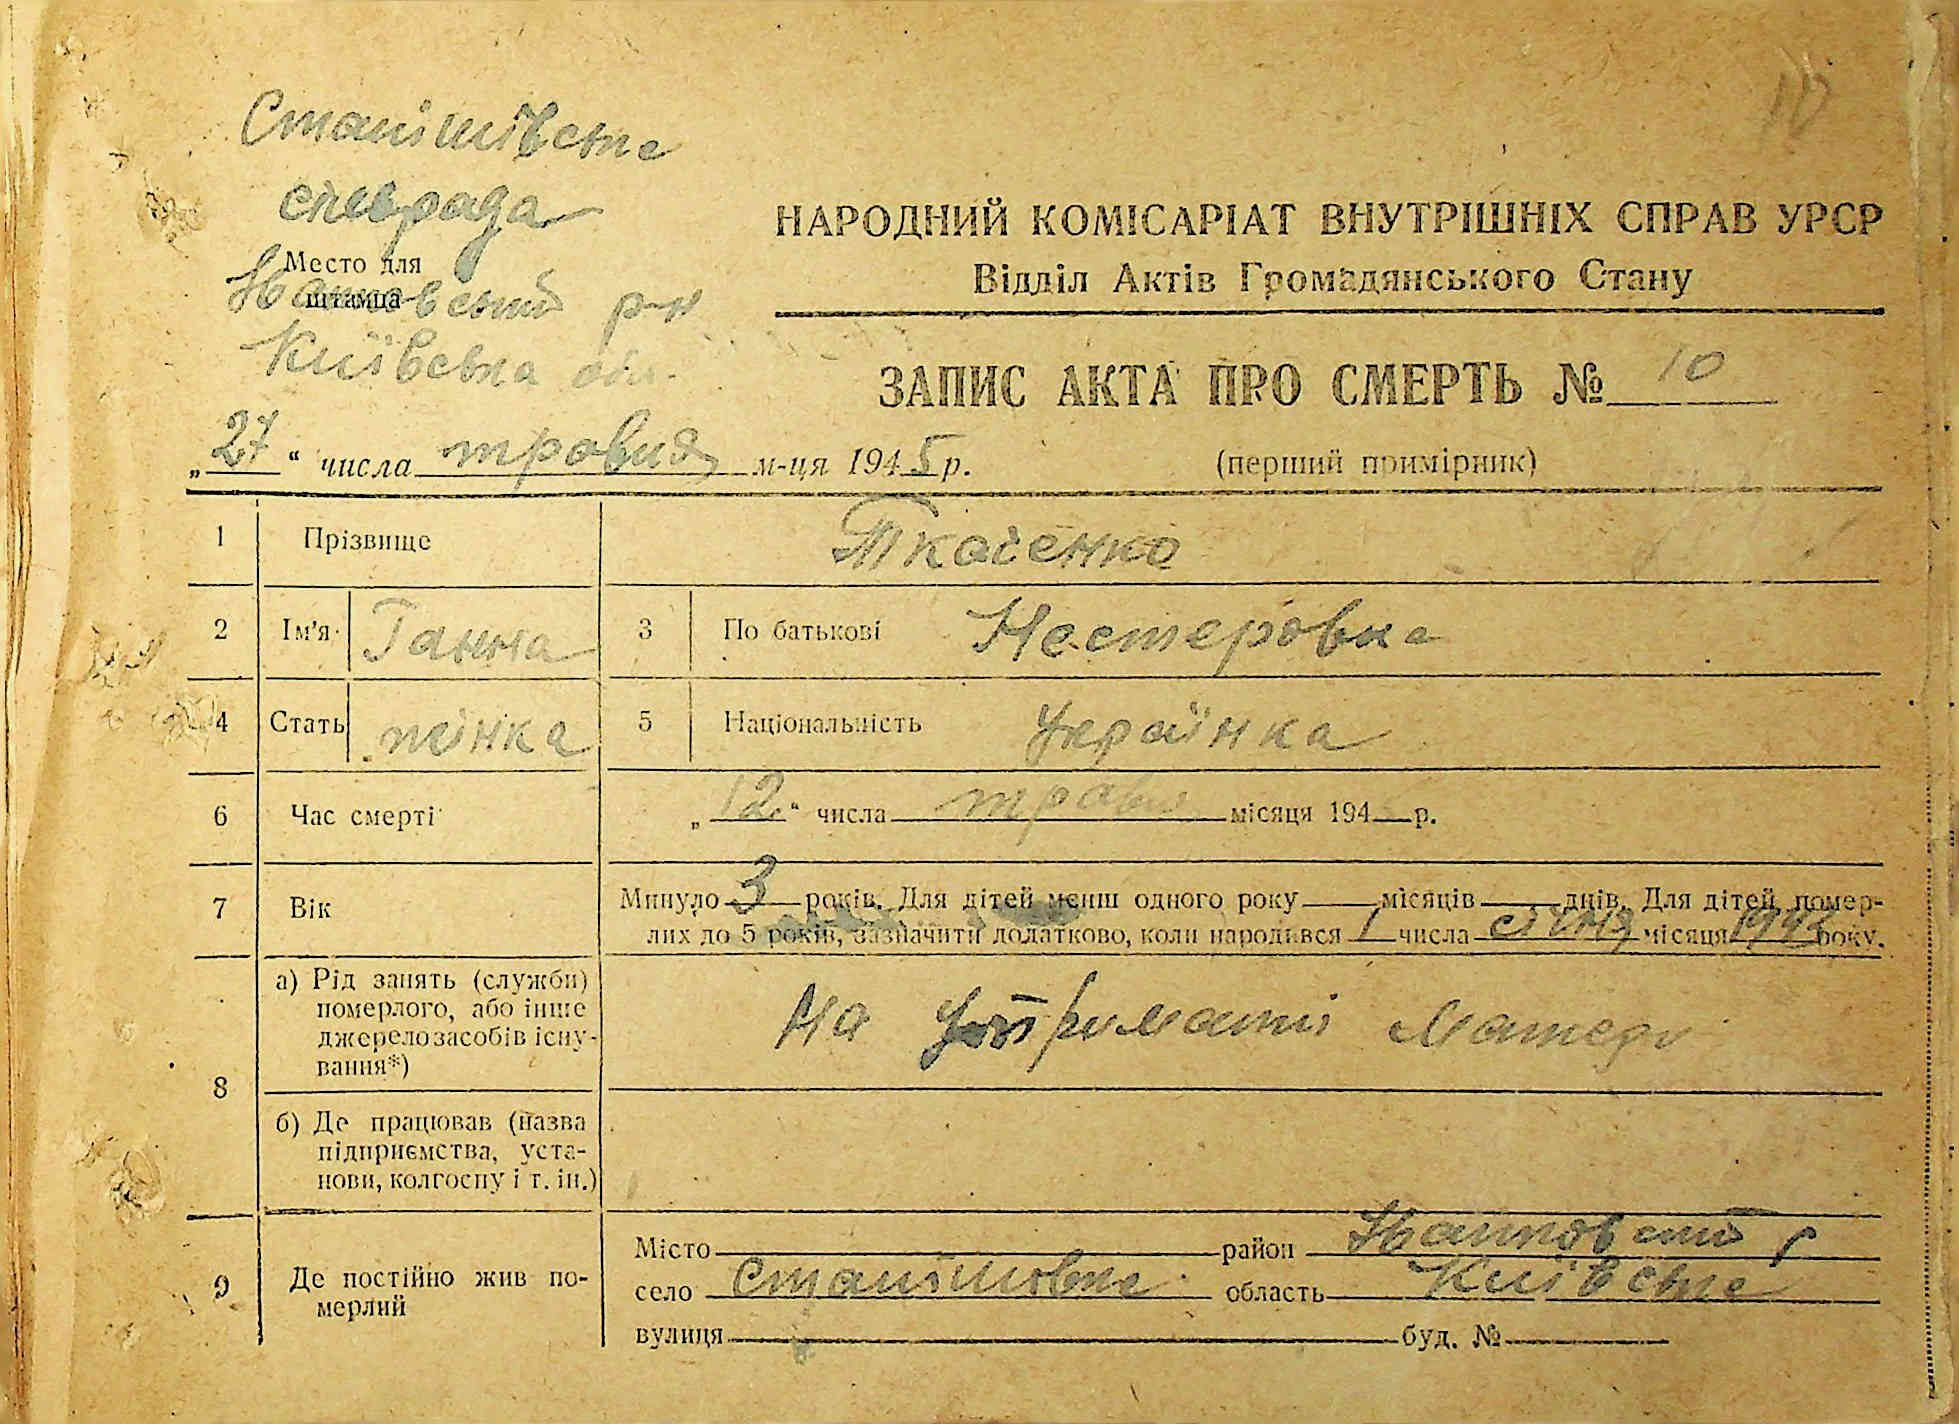 10
Станішівська
сільрада
Место для
штампа
р-н
Київська обл.
НАРОДНИЙ КОМІСАРІАТ ВНУТРІШНІХ СПРАВ УРСР
Відділ Актів Громадянського Стану
ЗАПИС АКТА ПРО СМЕРТЬ № 10
„27“ числа травня м-ця 1945 р.
(перший примірник)
1 Прізвище Ткаченко
2 Ім'я Ганна 3 По батькові Нестеровна
4 Стать жінка 5 Національність Українка
6 Час смерті „12“ числа травня місяця 194 р.
7 Вік Минуло 3 років. Для дітей менш одного року місяців днів. Для дітей помер-
лих до 5 років, зазначити додатково, коли народився 1 числа січня місяця року.
8 а) Рід занять (служби)
померлого, або інше
джерело засобів існу-
вання*)
На утриманні матері
б) Де працював (назва
підприємства, уста-
нови, колгоспу і т. ін.)
9 Де постійно жив по-
мерлий
Місто район
село область Київська
вулиця буд. №